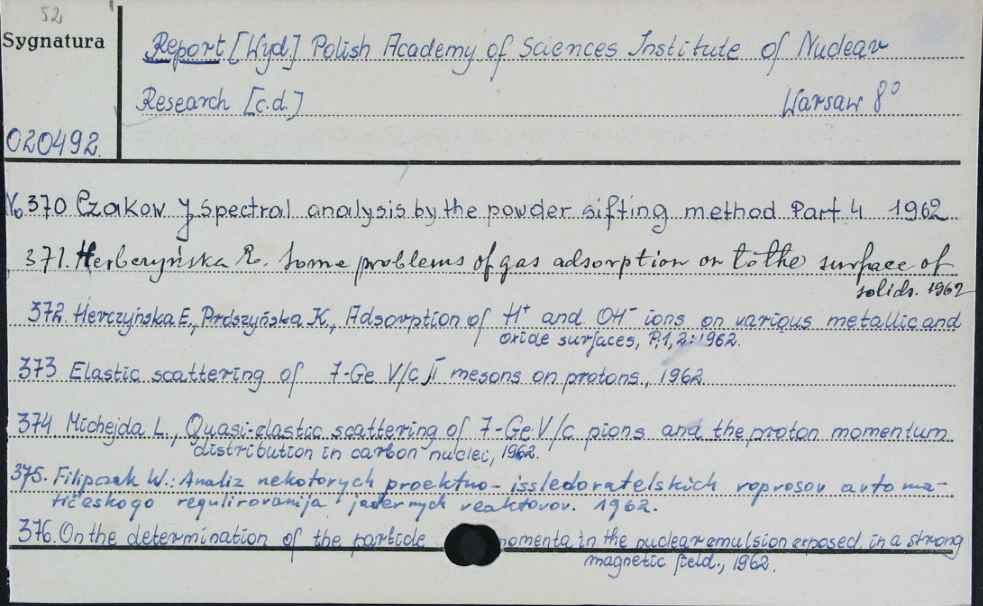 52
Sygnatura
Report [Wyd.] Polish Academy of Sciences Institute of Nuclear
Research [c.d.] Warsaw 8°
020492.
No 370 Czakow J Spectral analysis by the powder sifting method Part 4 1962
371. Herberyńska R. Some problems of gas adsorption on to the surface of
solids. 1962
372. Herczyńska E., Prószyńska K., Adsorption of H⁺ and OH⁻ ions on various metallic and
oxide surfaces, P. 1, 2. 1962.
373 Elastic scattering of 7-Ge V/c π mesons on protons., 1962
374 Michejda L., Quasi-elastic scattering of 7-GeV/c pions and the proton momentum
distribution in carbon nuclei, 1962.
375. Filipczak W.: Analiz nekotorych proektno-issledovatelskich voprosov avtoma-
tičeskogo regulirovanija jadernych reaktorov. 1962.
376. On the determination of the particle momenta in the nuclear emulsion exposed in a strong
magnetic field., 1962.